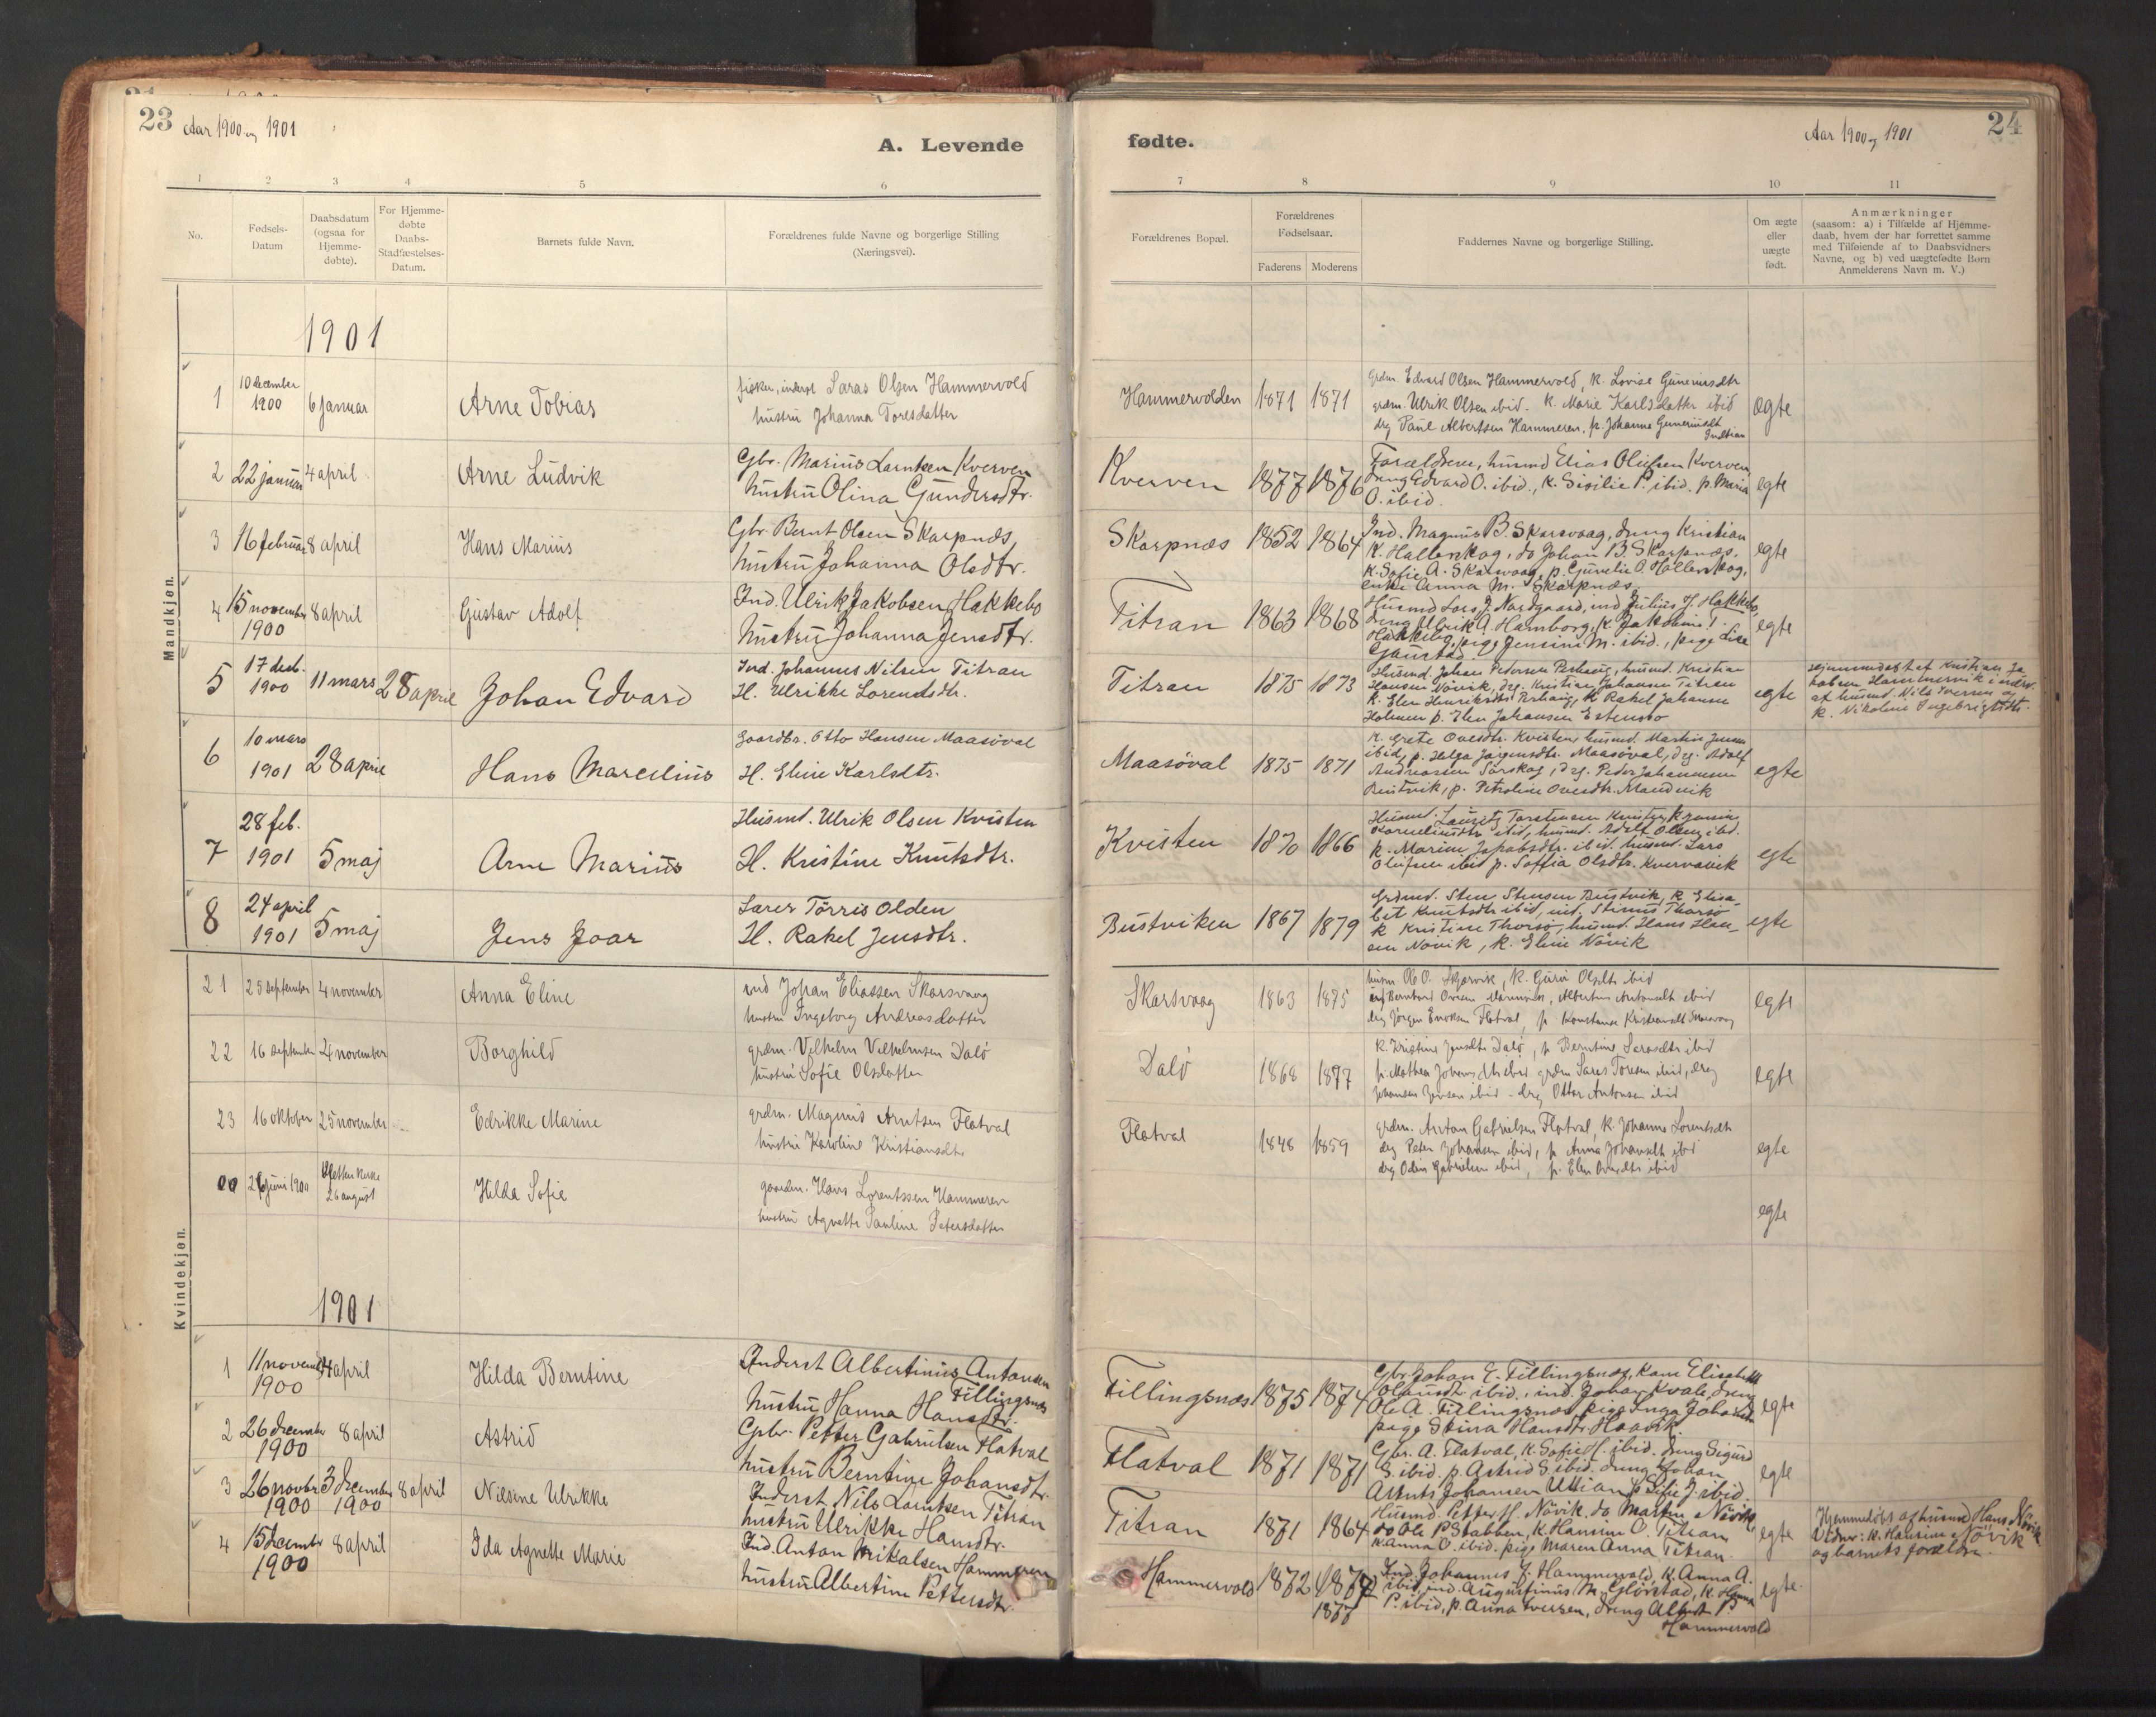 23
Aar 1900 og 1901
A. Levende
1
2
3
4
5
6
No.
Fødsels-
Datum
Daabsdatum
(ogsaa for
Hjemme-
døbte).
For Hjemme-
døbte
Daabs-
Stadfæstelses-
Datum.
Barnets fulde Navn.
Forældrenes fulde Navne og borgerlige Stilling
(Næringsvei).
Mandkjøn.
1901
1
10 december
1900
6 januar
Arne Tobias
fisker, inderst Laras Olsen Hammervold
hustru Johanna Toresdatter
2
22 januar
4 april
Arne Ludvik
Gbr. Marius Larntsen Kverven
hustru Olina Gundersdtr.
3
16 februar
8 april
Hans Marius
Gbr. Bernt Olsen Skarpnæs,
hustru Johanna Olsdtr.
4
15 november
1900
8 april
Gustav Adolf
Ind. Ulrik Jakobsen Hakkebo
hustru Johanna Jensdtr.
5
17 desb.
1900
11 mars
28 april
Johan Edvard
Ind. Johannes Nilsen Titran
H. Ulrikke Lorentsdtr.
6
10 mars
1901
28 april
Hans Marcelius
Gaardbr. Otto Hansen Maasøval
H. Eline Karlsdtr.
7
28 feb.
1901
5 maj
Arne Marius
Husmd. Ulrik Olsen Kvisten
H. Kristine Knutsdtr.
8
24 april
1901
5 maj
Jens Joar
Lærer Tørris Olden
H. Rakel Jensdtr.
Kvindekjøn.
21
25 september
4 november
Anna Eline
ind Johan Eliassen Skarsvaag
hustru Ingeborg Andreasdatter
22
16 september
4 november
Borghild
grdm. Vilhelm Vilhelmsen Dalø
hustru Sofie Olsdatter
23
16 oktober
25 november
Edrikke Marine
grdm. Magnus Arntsen Flatval
hustru Karoline Kristiansdtr
26 juni 1900
26 august
Hilda Sofie
gaardm. Hans Lorentssen Hammeren
hustru Agnethe Pauline Petersdatter
1901
1
11 novemb
1900
4 april
Hilda Berntine
Inderst Albertinus Antonsen
Fillingsnæs
hustru Hanna Hansdtr.
2
26 december
1900
8 april
Astrid
Gbr. Petter Gabrielsen Flatval
hustru Berntine Johansdtr.
3
26 novbr
1900
3 december
1900
8 april
Nilsine Ulrikke
Inderst Nils Larntsen Titran
hustru Ulrikke Hansdtr.
4
15 decembr
1900
8 april
Ida Agnette Marie
Ind. Anton Mikalsen Hammeren
hustru Albertine Pettersdtr.
24
Aar 1900 og 1901
fødte.
7
8
9
10
11
Forældrenes Bopæl.
Forældrenes
Fødselsaar.
Faderens
Moderens
Faddernes Navne og borgerlige Stilling.
Om ægte
eller
uægte
født.
Anmærkninger
(saasom: a) i Tilfælde af Hjemme-
daab, hvem der har forrettet samme
med Tilføiende af to Daabsvidners
Navne, og b) ved uægtefødte Børn
Anmelderens Navn m. V.)
Hammervolden
1871
1871
grdm. Edvard Olsen Hammervold, k. Lovise Guneriusdtr
grdm. Ulrik Olsen ibid. k. Marie Karlsdatter ibid
drg Paul Albertsen Hammeren, p. Johanna Guneriusdt
ægte
Kverven
1877
1876
Forældrene, husmd Elias Olufsen Kverven
dreng Edvard O. ibid., k. Sisilie P. ibid. p. Maria
O. ibid.
egte
Skarpnæs
1852
1864
Ind. Magnus B. Skarsvaag, dreng Kristian
K. Hallenskog, do Johan B. Skarpnæs,
k. Sofie A. Skarsvaag, p. Gurelie A. Hallenskog,
enke Anna M. Skarpnæs
egte
Titran
1863
1868
Husmd Lars J. Nordgaard, ind Julius J. Hakkebo,
dreng Ulrik A. Hamborg, k. Jakobine T.
Hakkebo, pige Jensine M. ibid., pige Lise
Gaustad
egte
Titran
1875
1873
Husmd. Johan Pedersen Perhaug, husmd. Kristian
Hansen Növik, drg. Kristian Johansen Titran
k. Elen Henriksdtr Perhaug, k. Rakel Johansen
Holmen p. Elen Johansen Estensvo
egte
Hjemmedøbt af Kristian Ja-
kobsen Hammervik i nærv.
af husmd. Nils Iversen og
k. Nikoline Ingebrigtsdtr.
Maasøval
1875
1871
k. Grete Ovesdtr. Kvisten, husmd. Martin Jensen
ibid, p. Helga Jørgensdtr. Maasøval, drg. Adolf
Andreassen Sørskag, drg. Peder Johannesen
Bustvik, p. Petroline Ovesdtr. Maudvik
egte
Kvisten
1870
1866
Husmd. Lauritz Torstensen Kvisten, k. Jonine
Korneliusdtr ibid, husmd. Adolf Olsen ibid.
k. Marine Jakobsdtr. ibid. husmd. Lars
Olufsen ibid p. Soffia Olsdtr. Kvervavik
egte
Bustviken
1867
1879
Grdmd. Sten Stensen Bustvik, k. Elisa-
bet Knutsdtr ibid, ind. Stinus Thorsø
k Kristine Thorsø, husmd. Hans Han-
sen Növik, k. Eline Növik
egte
Skarsvaag
1863
1875
husm Ole O. Skjærvik, k. Guru Olsdtr ibid
Bernhard Ovesen Hammervik, Albertine Antonsdtr ibid
drg Jørgen Eriksen Flatval, p. Konstanse Kristiansdt Skarsvaag
egte
Dalø
1868
1877
k. Kristine Jonsdtr Dalø, p. Berntine Larsdtr ibid
p. Mathea Johansdtr ibid grdm Lars Toresen ibid, drg
Johannes Jonsen ibid - drg Ottar Antonsen ibid
egte
Flatval
1848
1859
grdm. Anton Gabrielsen Flatval, k. Johanna Lorentsdtr
drg Peter Johansen ibid, p. Anna Johansdtr ibid
drg Odin Gabrielsen ibid, p. Elen Ovesdtr ibid
egte
egte
Fillingsnæs
1875
1874
Gbr. Johan E. Fillingsnæs, kone Elisabeth
Olausdtr ibid., ind. Johan Kvalø, dreng
Ole A. Fillingsnæs, pige Inga Johansen
pige Stina Hansdtr Haavik.
egte
Flatval
1871
1871
Gbr. A. Flatval, k. Sofie H. ibid. dreng Sigurd
S. ibid. p. Astrid S. ibid. dreng Johan
egte
Titran
1871
1864
Husmd. Petter H. Növik, do Martin Növik,
do Ole P. Stabben, k. Hansine O. Titran
k. Anna O. ibid. pige Maren Anna Titran.
egte
Hjemmedøbt af husmd Hans Növik
Vidner: k. Hansine Növik
og barnets forældre.
Hammervold
1872
1877
Ind. Johannes J. Hammervold, k. Anna A.
ibid, ind. Augustinus M. Glørstad, k. Hanna
P. ibid, p. Anna Iversen, dreng Albert P.
Hammervold
egte